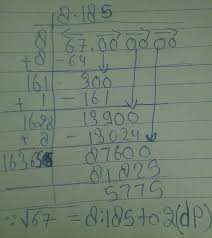 8.185
8 67.00 00 00
+8 -64
161 300
+ 1 - 161
1628 13900
+ 8 - 13024
16365 87600
81825
5775
∵ √67 = 8.185 to 2(dp)